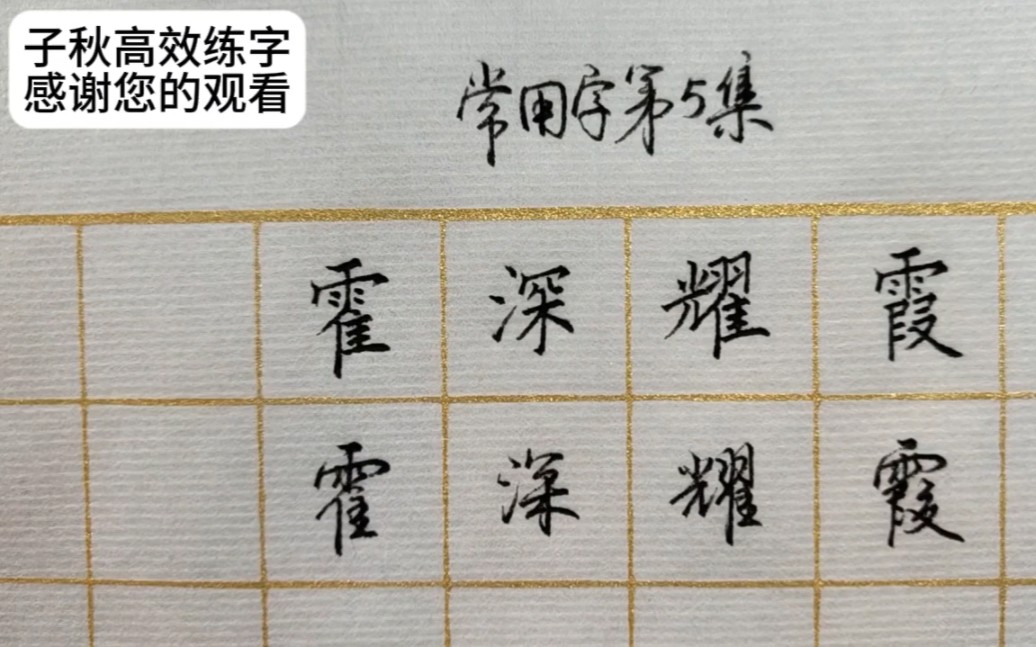 子秋高效练字
感谢您的观看
常用字第5集
霍深耀霞
霍深耀霞